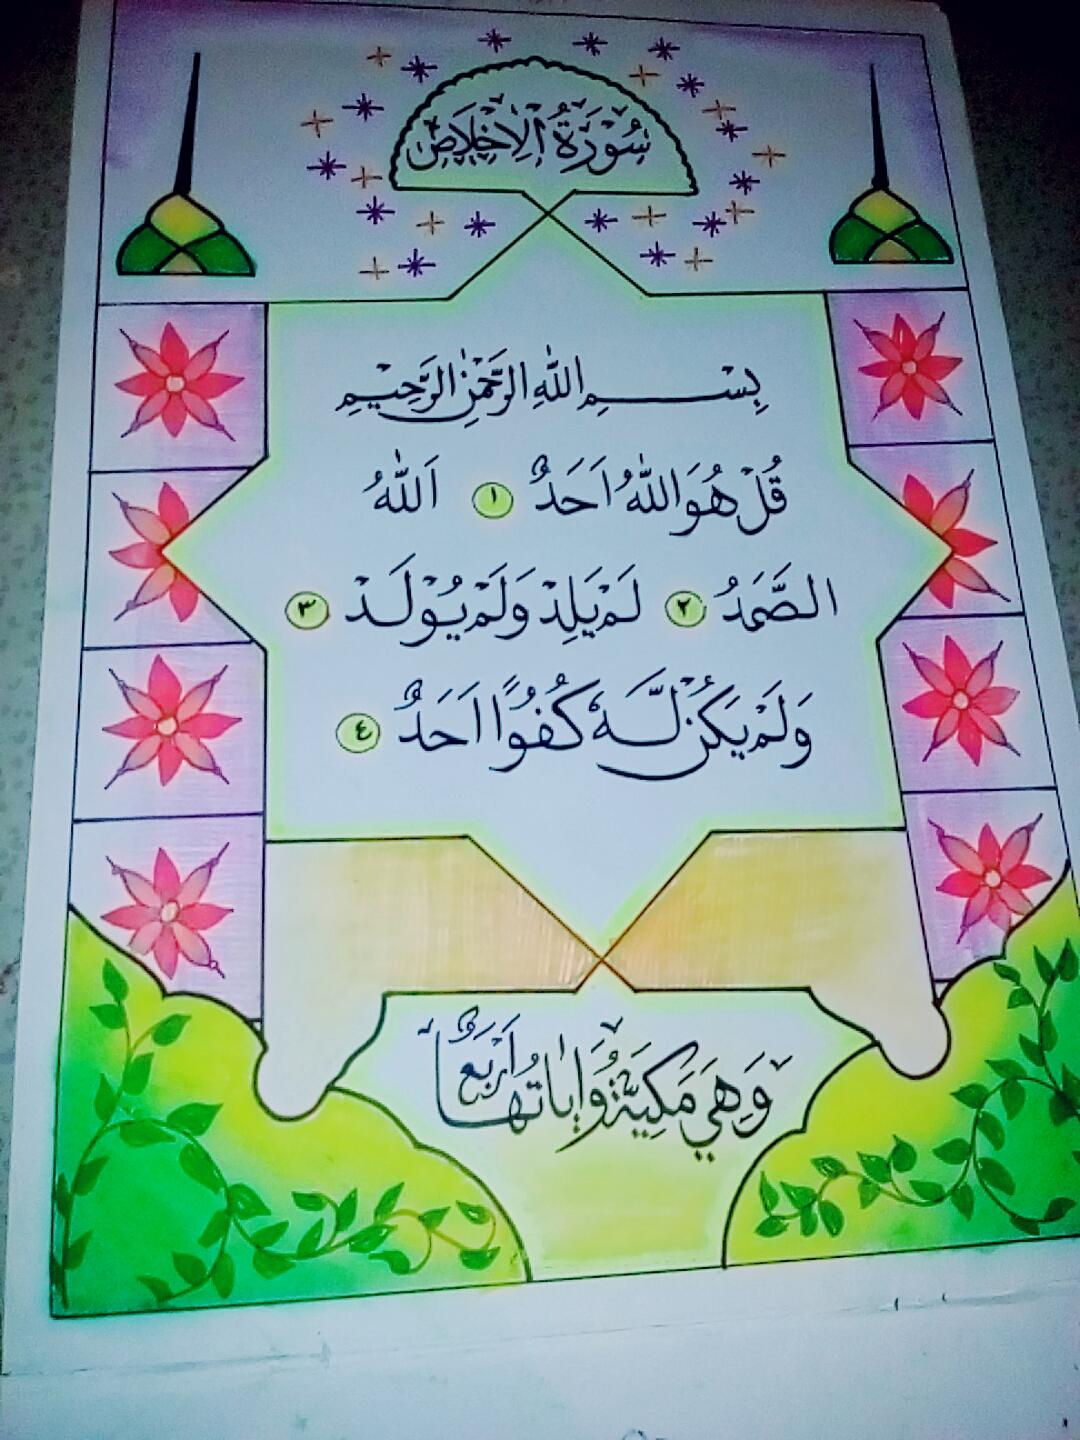 سُوْرَةُ الْاِخْلَاصْ
بِسْمِ اللّٰهِ الرَّحْمٰنِ الرَّحِيْمِ
قُلْ هُوَ اللّٰهُ اَحَدٌ ١ اَللّٰهُ
الصَّمَدُ ٢ لَمْ يَلِدْ وَلَمْ يُوْلَدْ ٣
وَلَمْ يَكُنْ لَّهٗ كُفُوًا اَحَدٌ ٤
وَهِيَ مَكِيَّةٌ وَاٰيَاتُهَا اَرْبَعٌ